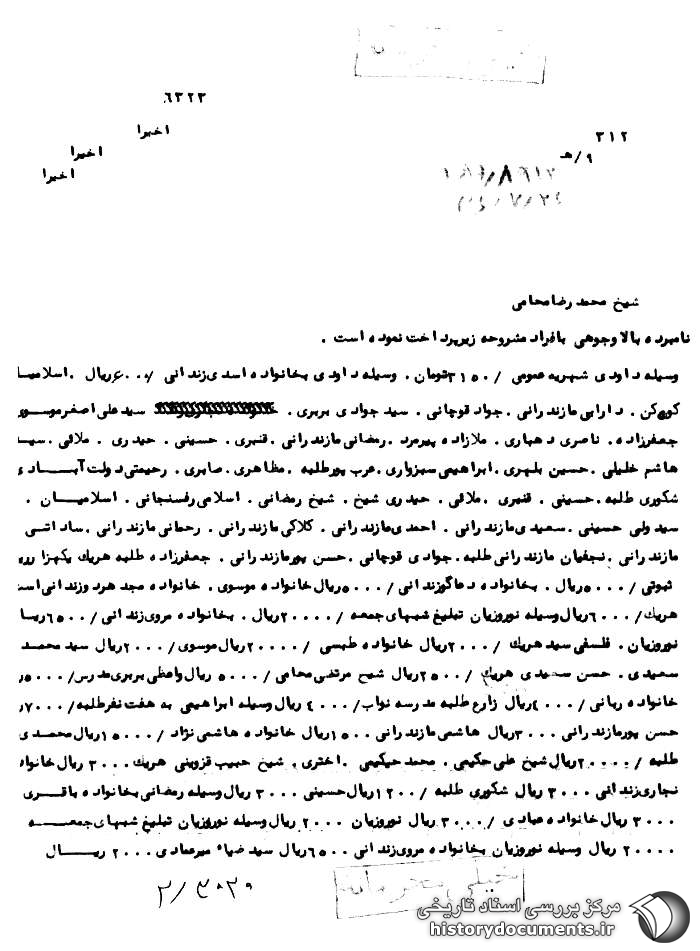 ۶۳۲۳
اخیرا
۳۱۲
اخیرا
۹/هـ
اخیرا
شیخ محمد رضا محامی
نامبرده بالا وجوهی بافراد مشروحه زیر پرداخت نموده است .
وسیله داودی شهریه عمومی /۳۱۵۰تومان. وسیله داودی بخانواده اسدی زندانی /۶۰۰۰ریال .
کوچ کن . دارابی مازندرانی . جواد قوچانی . سید جوادی بربری . سید علی اصغر موسوی
جعفرزاده. ناصری دهباری . ملازاده پیرمرد. رمضانی مازندرانی . قنبری . حسینی . حیدری . ملاقی .
هاشم خلیلی . حسین بلهری. ابراهیمی سبزواری. عرب پور طلبه . مظاهری . صابری. رحیمتی دولت آبادی
شکوری طلبه. حسینی . قنبری . ملاقی . حیدری شیخ . شیخ رمضانی . اسلامی رفسنجانی . اسلامیان .
سید ولی حسینی . سعیدی مازندرانی . احمدی مازندرانی . کلاکی مازندرانی . رحمانی مازندرانی . ساداتی
مازندرانی . نجفیان مازندرانی طلبه. جوادی قوچانی . حسن پور مازندرانی . جعفرزاده طلبه هریك یکهزار
ثبوتی /۵۰۰۰ریال . بخانواده دعاگوزندانی /۵۰۰۰ریال خانواده موسوی . خانواده مجد هردوزندانی
هریك/۶۰۰۰ریال وسیله نوروزیان تبلیغ شبهای جمعه /۲۰۰۰۰ریال . بخانواده مروی زندانی /۶۵۰۰
نوروزیان . فلسفی سید هریك /۲۰۰۰ریال خانواده طبسی /۲۰۰۰۰ریال موسوی /۲۰۰۰ریال سید محمد
سعیدی . حسن سعیدی هریك /۲۵۰۰ریال شیخ مرتضی محامی /۵۰۰۰ ریال واعظی بربری مدرس /۵۰۰۰
خانواده ربانی /۴۰۰۰ریال زارع طلبه مدرسه نواب /۴۰۰۰ ریال وسیله ابراهیمی به هفت نفر طلبه /۷۰۰۰
حسن پور مازندرانی ۳۰۰۰ریال هاشمی مازندرانی ۱۵۰۰ریال خانواده هاشمی نژاد /۱۵۰۰۰ریال محمدی
طلبه /۲۰۰۰۰ریال شیخ علی حکیمی . محمد حیکیمی . اختری . شیخ حبیب قزوینی هریك ۲۰۰۰ ریال
نجاری زندانی ۳۰۰۰ ریال شکوری طلبه /۱۲۰۰ریال حسینی ۳۰۰۰ ریال وسیله رمضانی بخانواده باقری
۳۰۰۰ ریال خانواده عبادی /۳۰۰۰ ریال نوروزیان ۲۰۰۰ ریال وسیله نوروزیان تبلیغ شبهای جمعه
۲۰۰۰۰ ریال وسیله نوروزیان بخانواده مروی زندانی ۶۵۰۰ریال سید ضیاء میرعمادی ۲۰۰۰ ریال
۲/۳۰۲۰
خیلی محرمانه
مرکز بررسی اسناد تاریخی
historydocuments.ir